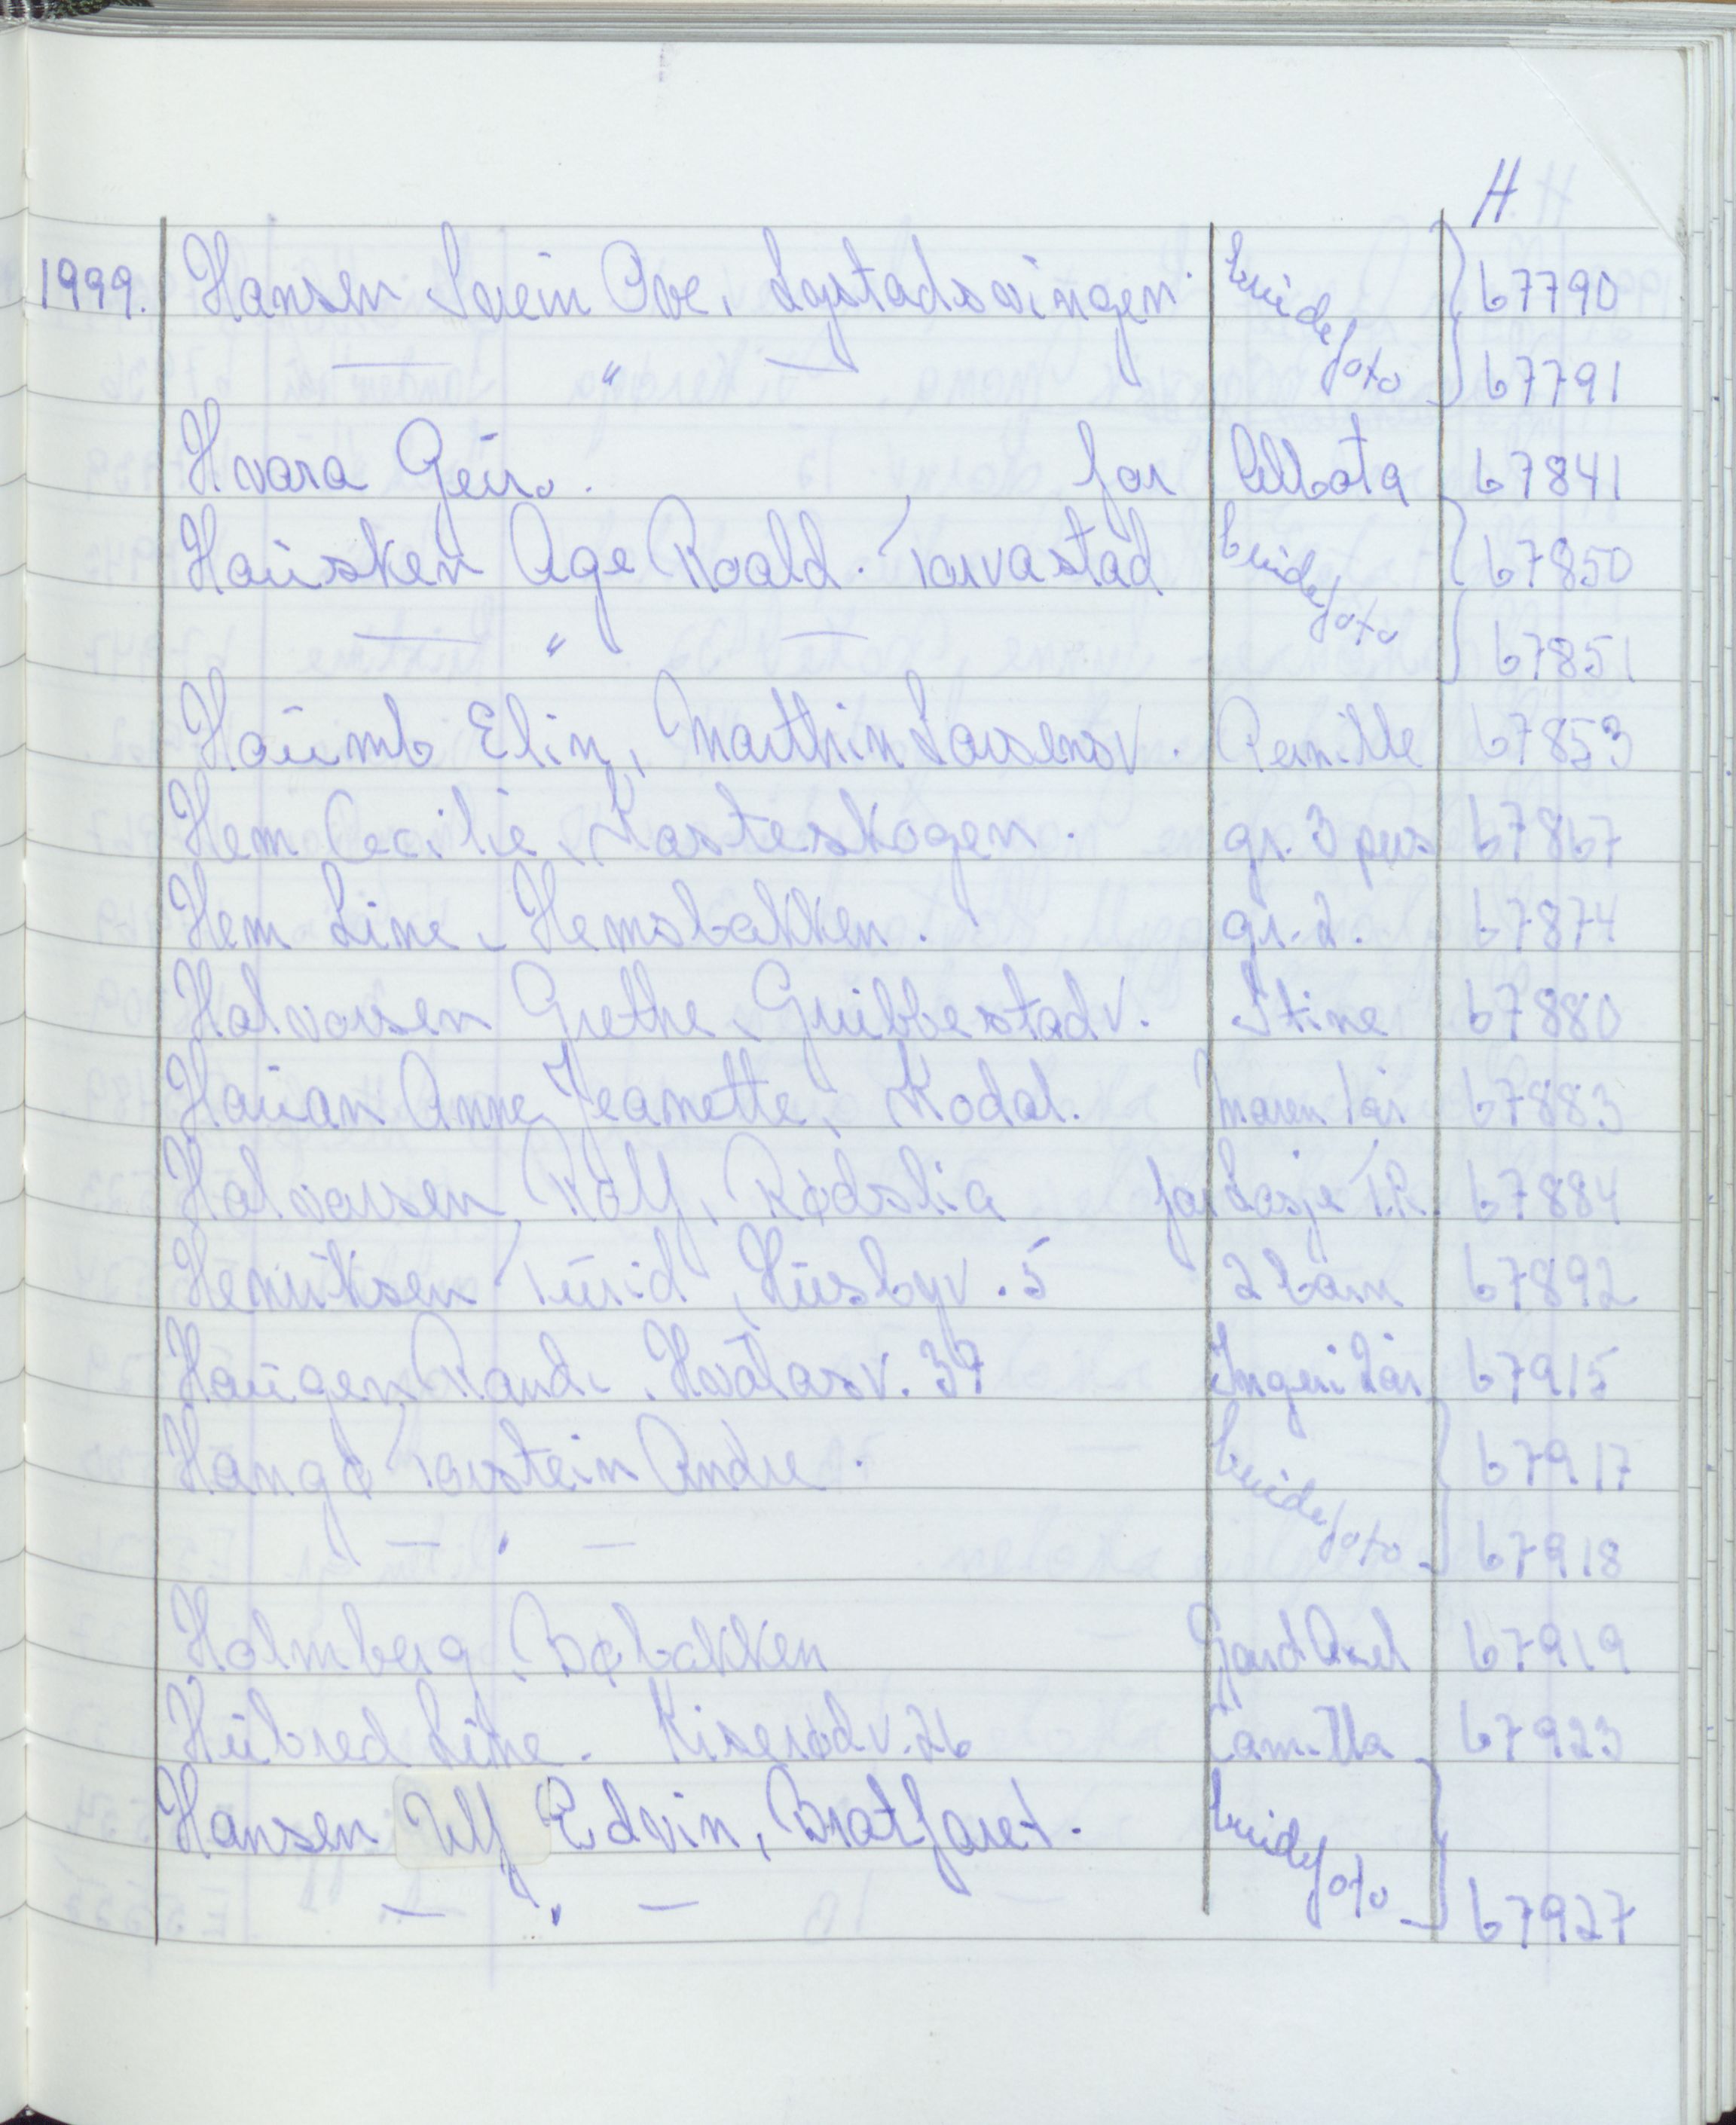 H
1999. Hansen Svein Ove, Lystadsvingen. brudefoto 67790
— " — 67791
Hvara Geir. for 67841
Hausken Åge Roald. Torvastad brudefoto 67850
— " — 67851
Haumb Elin, Marthin Larsensv. Pernille 67853
Hem Cecilie, Rasteskogen. gr. 3 pers 67867
Hem Line, Hemsbakken. gr. 2. 67874
Halvorsen Grethe, Gribbestadv. Stine 67880
Hauan Anne Jeanette, Kodal. Maren 1år 67883
Halvorsen Rolf, Rødslia for 67884
Henriksen Turid, Husbyv. 5 2 barn 67892
Haugen Randi, Hvålasv. 39 Ingeri 2år 67915
Hangø Torstein Andre. brudefoto 67917
— " — 67918
Holmberg, Bøbakken Gard Axel 67919
Hübred Line. Kiserødv. 26 Camilla 67923
Hansen Ulf Edvin, Bratfaret. brudefoto
— " — 67927